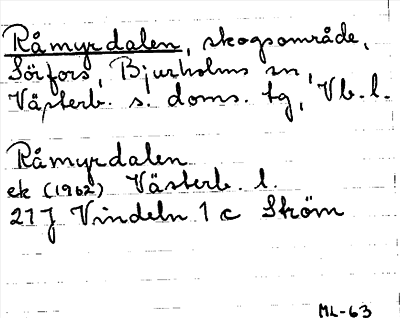 Råmyrdalen, skogsområde,
Sörfors, Bjurholms sn,
Västerb. s. doms. tg, Vb. l.
Råmyrdalen
ek (1962) Västerb. l.
21J Vindeln 1 c Ström
ML-63